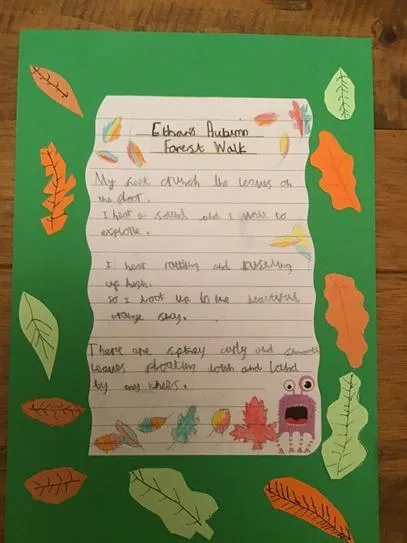 Ethan's Autumn
Forest Walk
My feet crunch the leaves on
the floor.
I hear a sound and I want to
explore.
I hear rattling and rustling
up high.
So I look up to the beautiful
orange sky.
There are spikey curly and smooth
leaves floating down and land
by my knees.